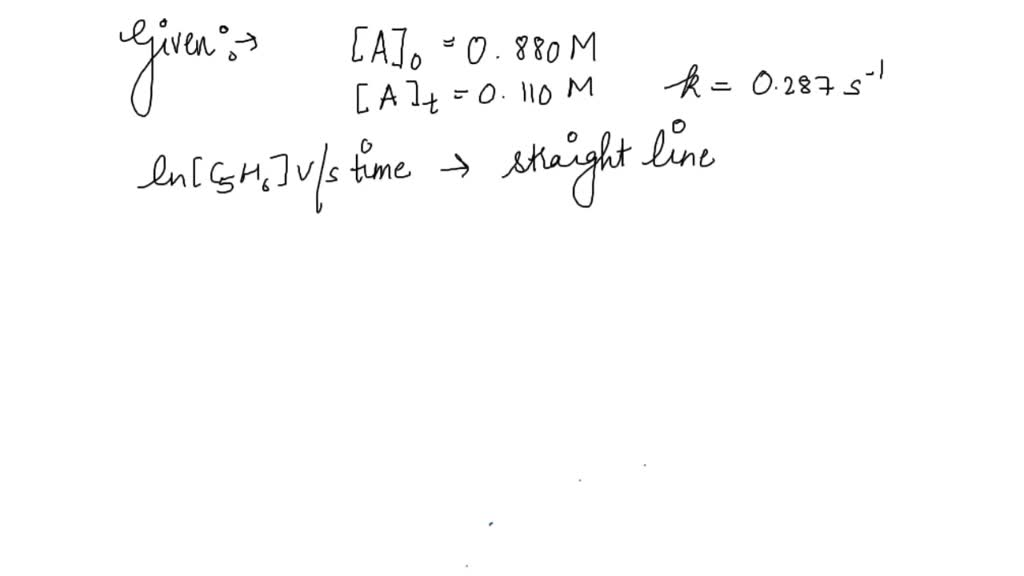 Given:→ [A]₀ = 0.880 M
[A]t = 0.110 M k = 0.287 s⁻¹
ln[C₅H₆] v/s time → straight line